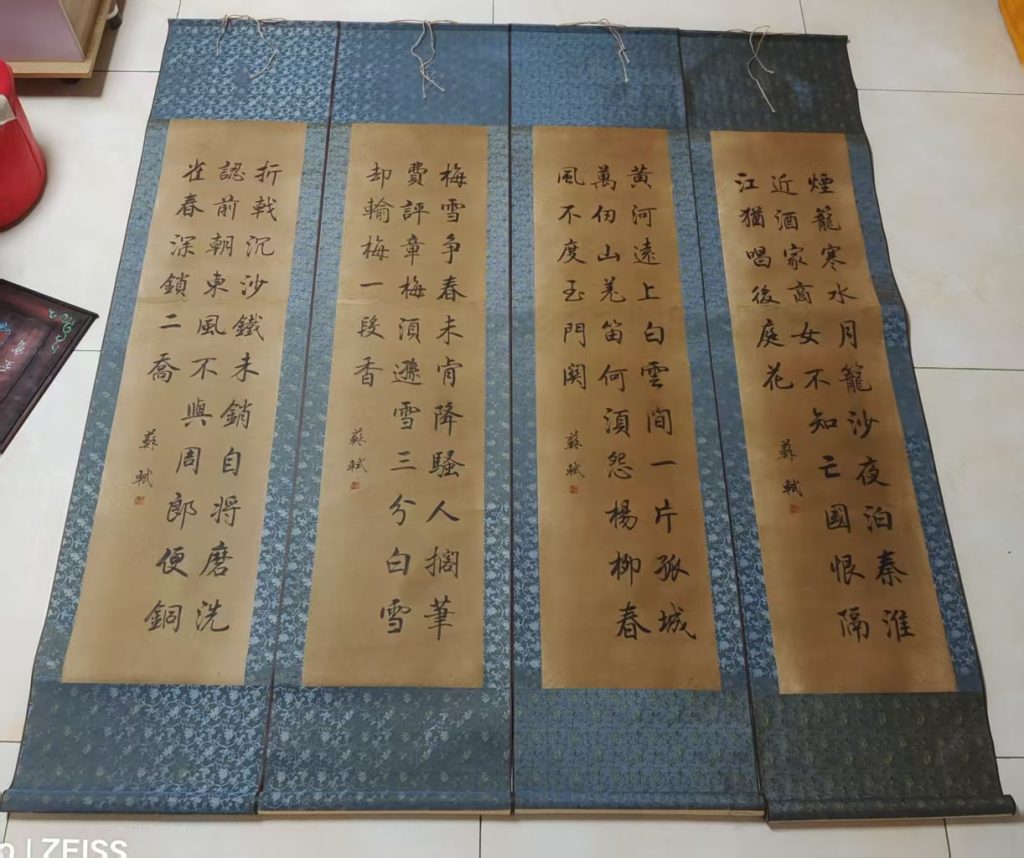 煙籠寒水月籠沙夜泊秦淮
近酒家商女不知亡國恨隔
江猶唱後庭花
蘇軾
黄河遠上白雲間一片孤城
萬仞山羌笛何湏怨楊柳春
風不度玉門関
蘇軾
梅雪争春未肯降騷人擱筆
費評章梅湏遜雪三分白雪
却輸梅一段香
蘇軾
折戟沉沙鐵未銷自将磨洗
認前朝東風不與周郎便銅
雀春深鎖二喬
蘇軾
ZEISS